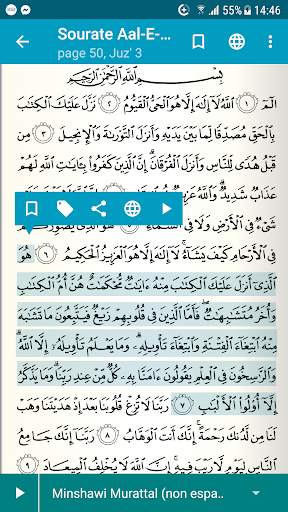 14:46
54%
Sourate Aal-E-...
page 50, Juz' 3
بِسْمِ ٱللَّهِ ٱلرَّحْمَٰنِ ٱلرَّحِيمِ
الٓمٓ ١ ٱللَّهُ لَآ إِلَٰهَ إِلَّا هُوَ ٱلْحَىُّ ٱلْقَيُّومُ ٢ نَزَّلَ عَلَيْكَ ٱلْكِتَٰبَ
بِٱلْحَقِّ مُصَدِّقًا لِّمَا بَيْنَ يَدَيْهِ وَأَنزَلَ ٱلتَّوْرَىٰةَ وَٱلْإِنجِيلَ ٣ مِن
قَبْلُ هُدًى لِّلنَّاسِ وَأَنزَلَ ٱلْفُرْقَانَ ۗ إِنَّ ٱلَّذِينَ كَفَرُوا۟ بِـَٔايَٰتِ ٱللَّهِ لَهُمْ
عَذَابٌ شَدِيدٌ ۗ وَٱللَّهُ عَزِيزٌ
شَىْءٌ فِى ٱلْأَرْضِ وَلَا فِى ٱلسَّمَآءِ
فِى ٱلْأَرْحَامِ كَيْفَ يَشَآءُ ۚ لَآ إِلَٰهَ إِلَّا هُوَ ٱلْعَزِيزُ ٱلْحَكِيمُ ٦ هُوَ
ٱلَّذِىٓ أَنزَلَ عَلَيْكَ ٱلْكِتَٰبَ مِنْهُ ءَايَٰتٌ مُّحْكَمَٰتٌ هُنَّ أُمُّ ٱلْكِتَٰبِ
وَأُخَرُ مُتَشَٰبِهَٰتٌ ۖ فَأَمَّا ٱلَّذِينَ فِى قُلُوبِهِمْ زَيْغٌ فَيَتَّبِعُونَ مَا تَشَٰبَهَ
مِنْهُ ٱبْتِغَآءَ ٱلْفِتْنَةِ وَٱبْتِغَآءَ تَأْوِيلِهِۦ ۗ وَمَا يَعْلَمُ تَأْوِيلَهُۥٓ إِلَّا ٱللَّهُ ۗ
وَٱلرَّٰسِخُونَ فِى ٱلْعِلْمِ يَقُولُونَ ءَامَنَّا بِهِۦ كُلٌّ مِّنْ عِندِ رَبِّنَا ۗ وَمَا يَذَّكَّرُ
إِلَّآ أُو۟لُوا۟ ٱلْأَلْبَٰبِ ٧ رَبَّنَا لَا تُزِغْ قُلُوبَنَا بَعْدَ إِذْ هَدَيْتَنَا وَهَبْ
لَنَا مِن لَّدُنكَ رَحْمَةً ۚ إِنَّكَ أَنتَ ٱلْوَهَّابُ ٨ رَبَّنَآ إِنَّكَ جَامِعُ
ٱلنَّاسِ لِيَوْمٍ لَّا رَيْبَ فِيهِ ۚ إِنَّ ٱللَّهَ لَا يُخْلِفُ ٱلْمِيعَادَ ٩
Minshawi Murattal (non espa...